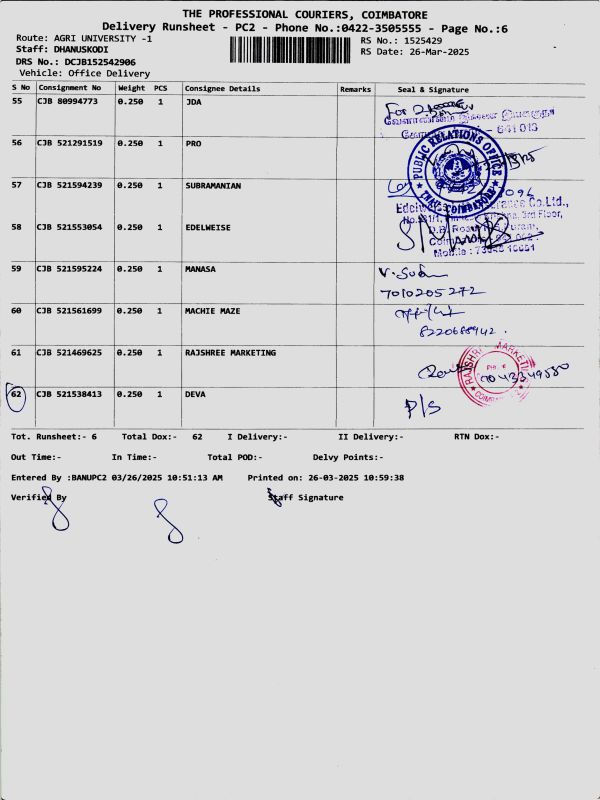 THE PROFESSIONAL COURIERS, COIMBATORE
Delivery Runsheet - PC2 - Phone No.:0422-3505555 - Page No.:6
Route: AGRI UNIVERSITY -1 RS No.: 1525429
Staff: DHANUSKODI RS Date: 26-Mar-2025
DRS No.: DCJB152542906
Vehicle: Office Delivery
S No Consignment No Weight PCS Consignee Details Remarks Seal & Signature
55 CJB 80994773 0.250 1 JDA For
- 641 013
56 CJB 521291519 0.250 1 PRO
PUBLIC RELATIONS OFFICE
TNAU, COIMBATORE
57 CJB 521594239 0.250 1 SUBRAMANIAN
Co.Ltd.,
3rd Floor,
58 CJB 521553054 0.250 1 EDELWEISE
59 CJB 521595224 0.250 1 MANASA
7010205272
60 CJB 521561699 0.250 1 MACHIE MAZE
8220688942.
61 CJB 521469625 0.250 1 RAJSHREE MARKETING
62 CJB 521538413 0.250 1 DEVA P/S
Tot. Runsheet:- 6 Total Dox:- 62 I Delivery:- II Delivery:- RTN Dox:-
Out Time:- In Time:- Total POD:- Delvy Points:-
Entered By :BANUPC2 03/26/2025 10:51:13 AM Printed on: 26-03-2025 10:59:38
Verified By Staff Signature